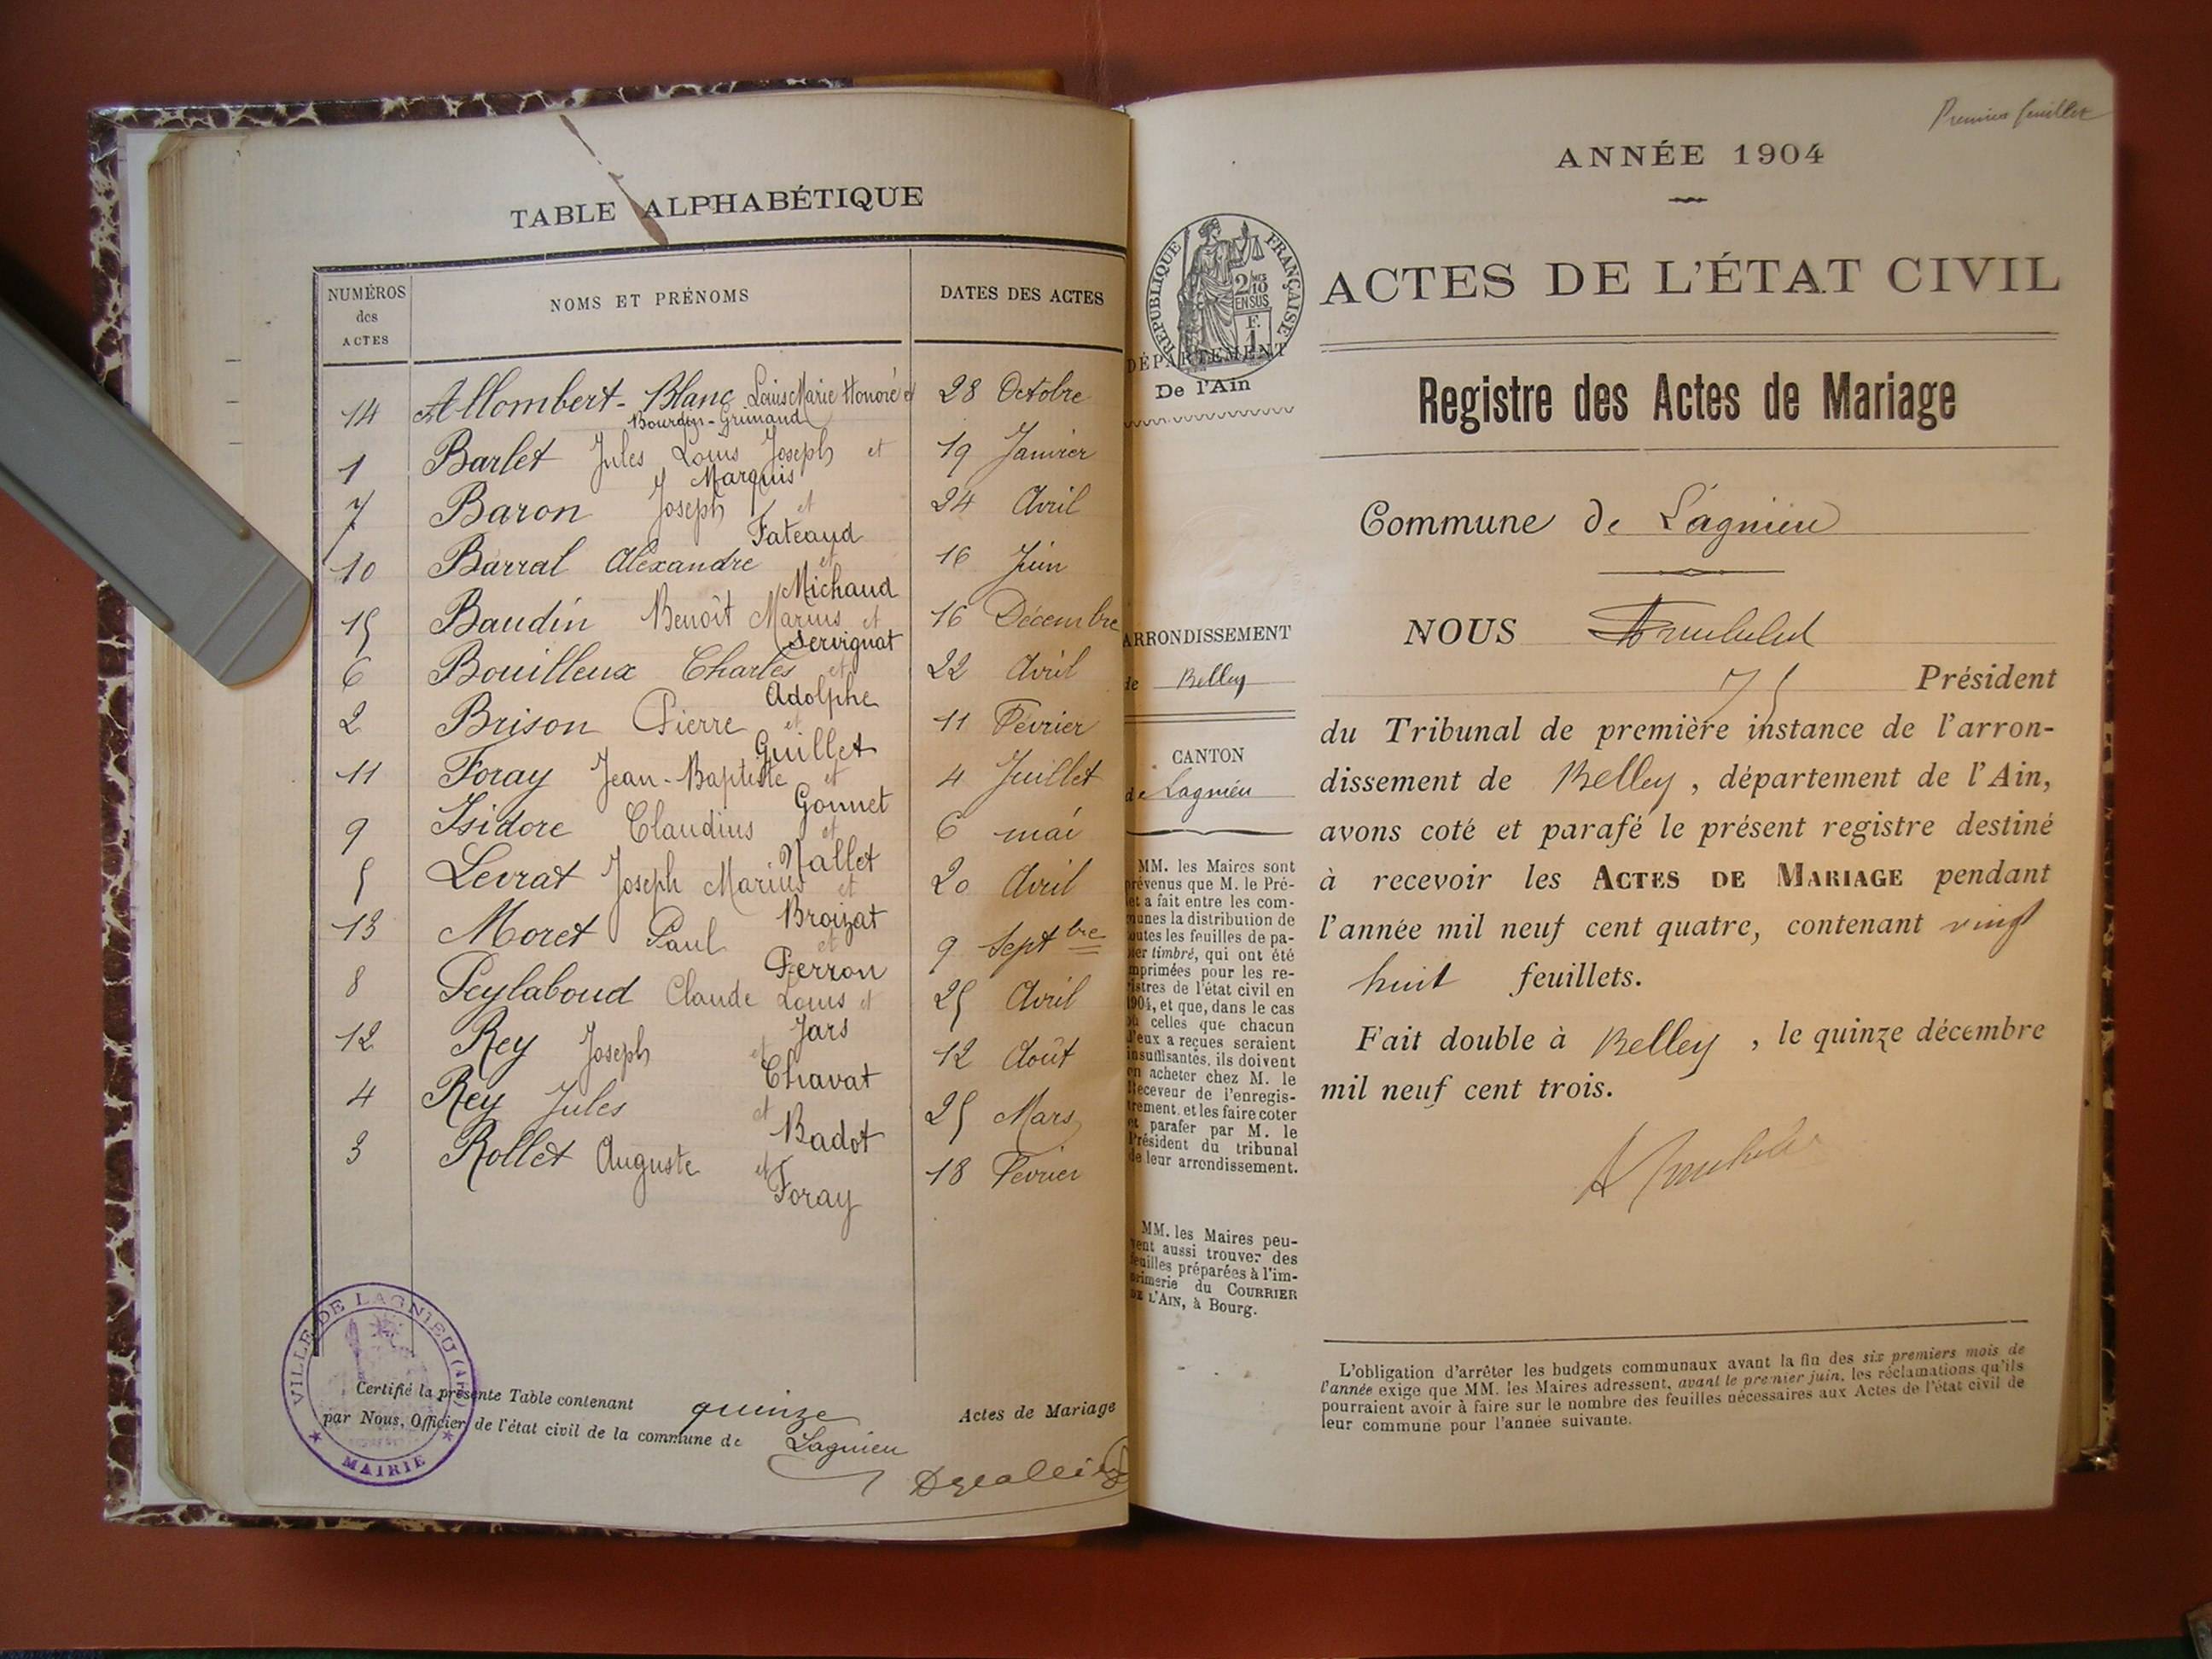 TABLE ALPHABÉTIQUE
NUMÉROS des ACTES
NOMS ET PRÉNOMS
DATES DES ACTES
14 Allombert-Blanc Louis Marie Honoré et 28 Octobre
Bourdin-Grimaud
1 Barlet Jules Louis Joseph et 19 Janvier
Marquis
7 Baron Joseph et 24 Avril
Fateaud
10 Barral Alexandre et 16 Juin
Michaud
15 Baudin Benoît Marius et 16 Décembre
Servignat
6 Bouilleux Charles et 22 Avril
Adolphe
2 Brison Pierre et 11 Février
Guillet
11 Foray Jean-Baptiste et 4 Juillet
Gonnet
9 Isidore Claudius et 6 mai
Vallet
5 Levrat Joseph Marius et 20 Avril
Broizat
13 Moret Paul et 9 Septbre
Perron
8 Peylaboud Claude Louis et 25 Avril
Jars
12 Rey Joseph et 12 Août
Chavat
4 Rey Jules et 25 Mars
Badot
3 Rollet Auguste et 18 Février
Foray
VILLE DE LAGNIEU (AIN)
MAIRIE
Certifié la présente Table contenant quinze Actes de Mariage
par Nous, Officier de l'état civil de la commune de Lagnieu
Premier feuillet
ANNÉE 1904
RÉPUBLIQUE FRANÇAISE
2/10 EN SUS
F. 1
ACTES DE L'ÉTAT CIVIL
DÉPARTEMENT
De l'Ain
Registre des Actes de Mariage
Commune de Lagnieu
NOUS
Président
du Tribunal de première instance de l'arron-
dissement de Belley, département de l'Ain,
avons coté et parafé le présent registre destiné
à recevoir les ACTES DE MARIAGE pendant
l'année mil neuf cent quatre, contenant vingt
huit feuillets.
Fait double à Belley, le quinze décembre
mil neuf cent trois.
ARRONDISSEMENT
de Belley
CANTON
de Lagnieu
MM. les Maires sont
prévenus que M. le Pré-
fet a fait entre les com-
munes la distribution de
toutes les feuilles de pa-
pier timbré, qui ont été
imprimées pour les re-
gistres de l'état civil en
1904, et que, dans le cas
où celles que chacun
d'eux a reçues seraient
insuffisantes, ils doivent
en acheter chez M. le
Receveur de l'enregis-
trement, et les faire coter
et parafer par M. le
Président du tribunal
de leur arrondissement.
MM. les Maires peu-
vent aussi trouver des
feuilles préparées à l'im-
primerie du COURRIER
DE L'AIN, à Bourg.
L'obligation d'arrêter les budgets communaux avant la fin des six premiers mois de
l'année exige que MM. les Maires adressent, avant le premier juin, les réclamations qu'ils
pourraient avoir à faire sur le nombre des feuilles nécessaires aux Actes de l'état civil de
leur commune pour l'année suivante.